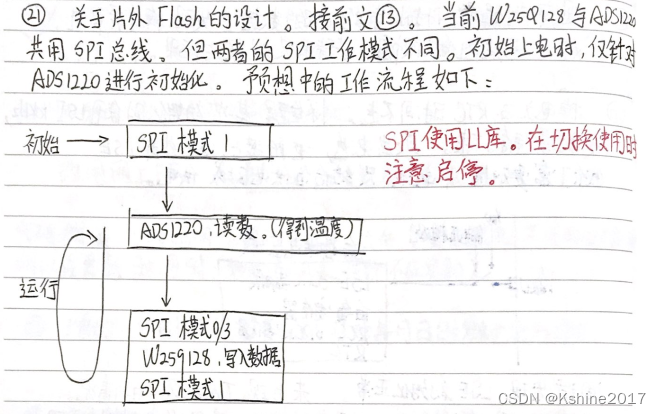 ㉑ 关于片外 Flash的设计。接前文⑬。当前 W25Q128 与ADS1220
共用SPI总线。但两者的SPI工作模式不同。初始上电时,仅针对
ADS1220进行初始化。预想中的工作流程如下:
初始
SPI 模式1
SPI使用LL库。在切换使用时
注意启停。
ADS1220,读数。(得到温度)
运行
SPI 模式0/3
W25Q128,写入数据
SPI 模式1
CSDN @Kshine2017